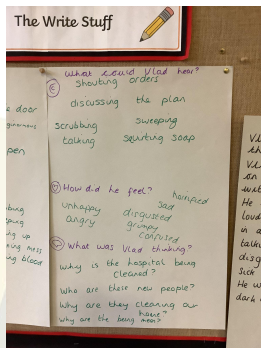 The Write Stuff
What could Vlad hear?
shouting orders
discussing the plan
scrubbing sweeping
talking squirting soap
How did he feel?
horrified
unhappy sad
angry disgusted
grumpy
confused
What was Vlad thinking?
Why is the hospital being
cleaned?
Who are these new people?
Why are they cleaning our
home?
Why are the being mean?
e door
ginormous
pen
ing up
ing mess
ng blood
He
loud
in a
talk
disg
Sick
He w
dark